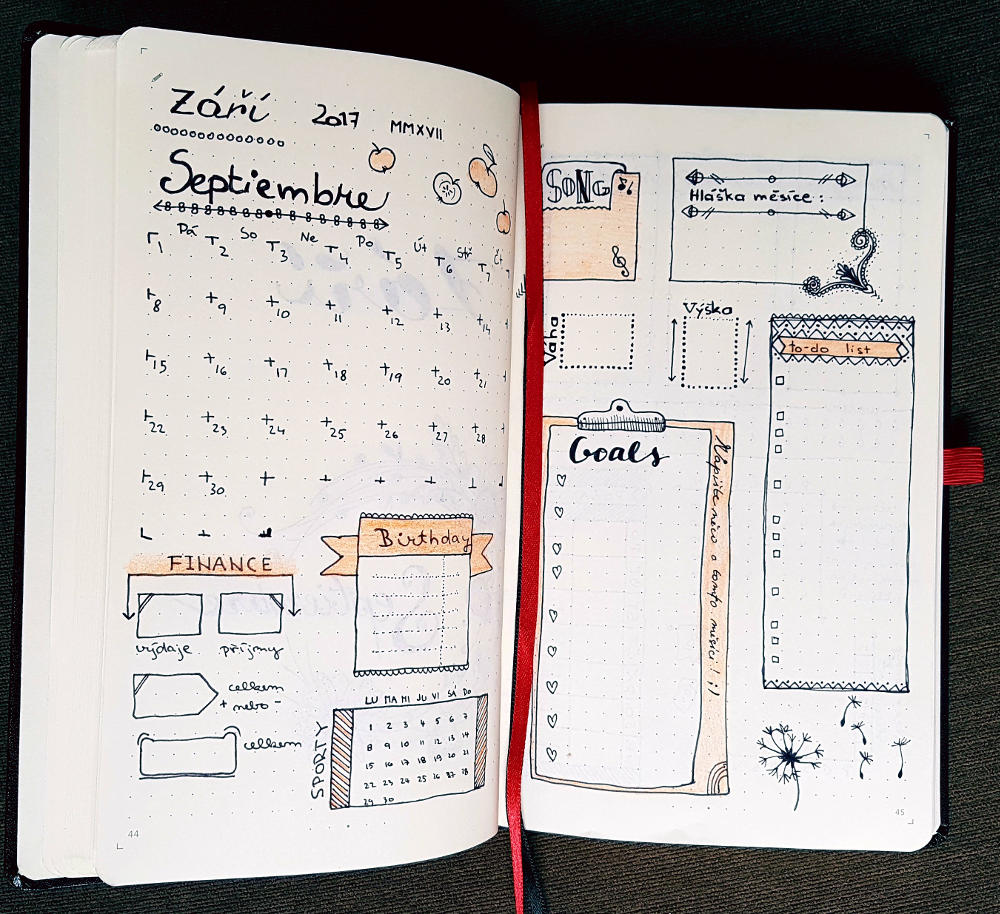 Září 2017 MMXVII
Septiembre
Pá So Ne Po Út Stř Čt
1 2 3 4 5 6 7
8 9 10 11 12 13 14
15 16 17 18 19 20 21
22 23 24 25 26 27 28
29 30
FINANCE
výdaje příjmy
celkem
+ nebo -
celkem
Birthday
SPORTY
LU MA MI JU VI SÁ DO
1 2 3 4 5 6 7
8 9 10 11 12 13 14
15 16 17 18 19 20 21
22 23 24 25 26 27 28
29 30
44
SONG
Hláška měsíce:
Váha
Výška
to-do list
Goals
Napište něco o tomto měsíci! :)
45